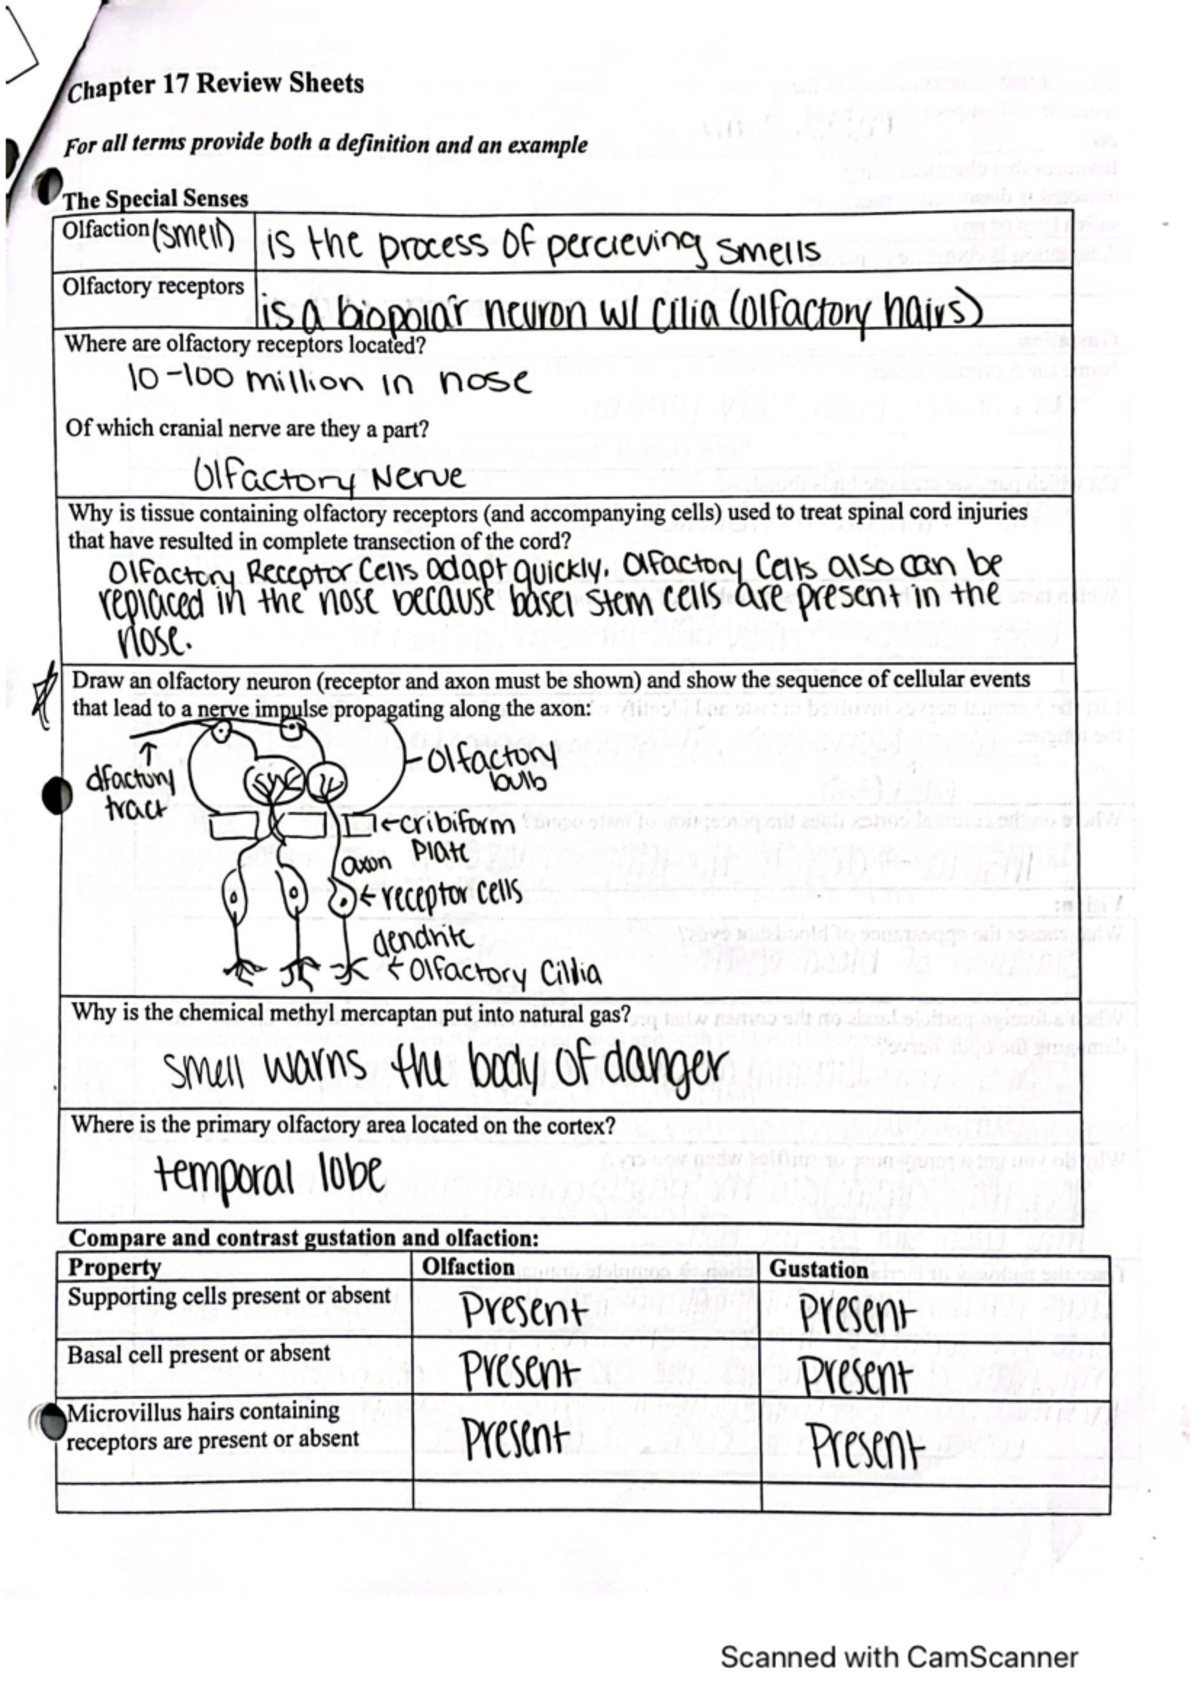 Chapter 17 Review Sheets
For all terms provide both a definition and an example
The Special Senses
Olfaction (smell) is the process of percieving smells
Olfactory receptors is a biopolar neuron w/ cilia (olfactory hairs)
Where are olfactory receptors located?
10-100 million in nose
Of which cranial nerve are they a part?
Olfactory Nerve
Why is tissue containing olfactory receptors (and accompanying cells) used to treat spinal cord injuries
that have resulted in complete transection of the cord?
Olfactory Receptor Cells adapt quickly. Olfactory Cells also can be
replaced in the nose because basel stem cells are present in the
nose.
Draw an olfactory neuron (receptor and axon must be shown) and show the sequence of cellular events
that lead to a nerve impulse propagating along the axon:
olfactory
tract
Olfactory
bulb
cribiform
Plate
axon
receptor cells
dendrite
Olfactory Cillia
Why is the chemical methyl mercaptan put into natural gas?
smell warns the body of danger
Where is the primary olfactory area located on the cortex?
temporal lobe
Compare and contrast gustation and olfaction:
Property Olfaction Gustation
Supporting cells present or absent Present Present
Basal cell present or absent Present Present
Microvillus hairs containing
receptors are present or absent Present Present
Scanned with CamScanner